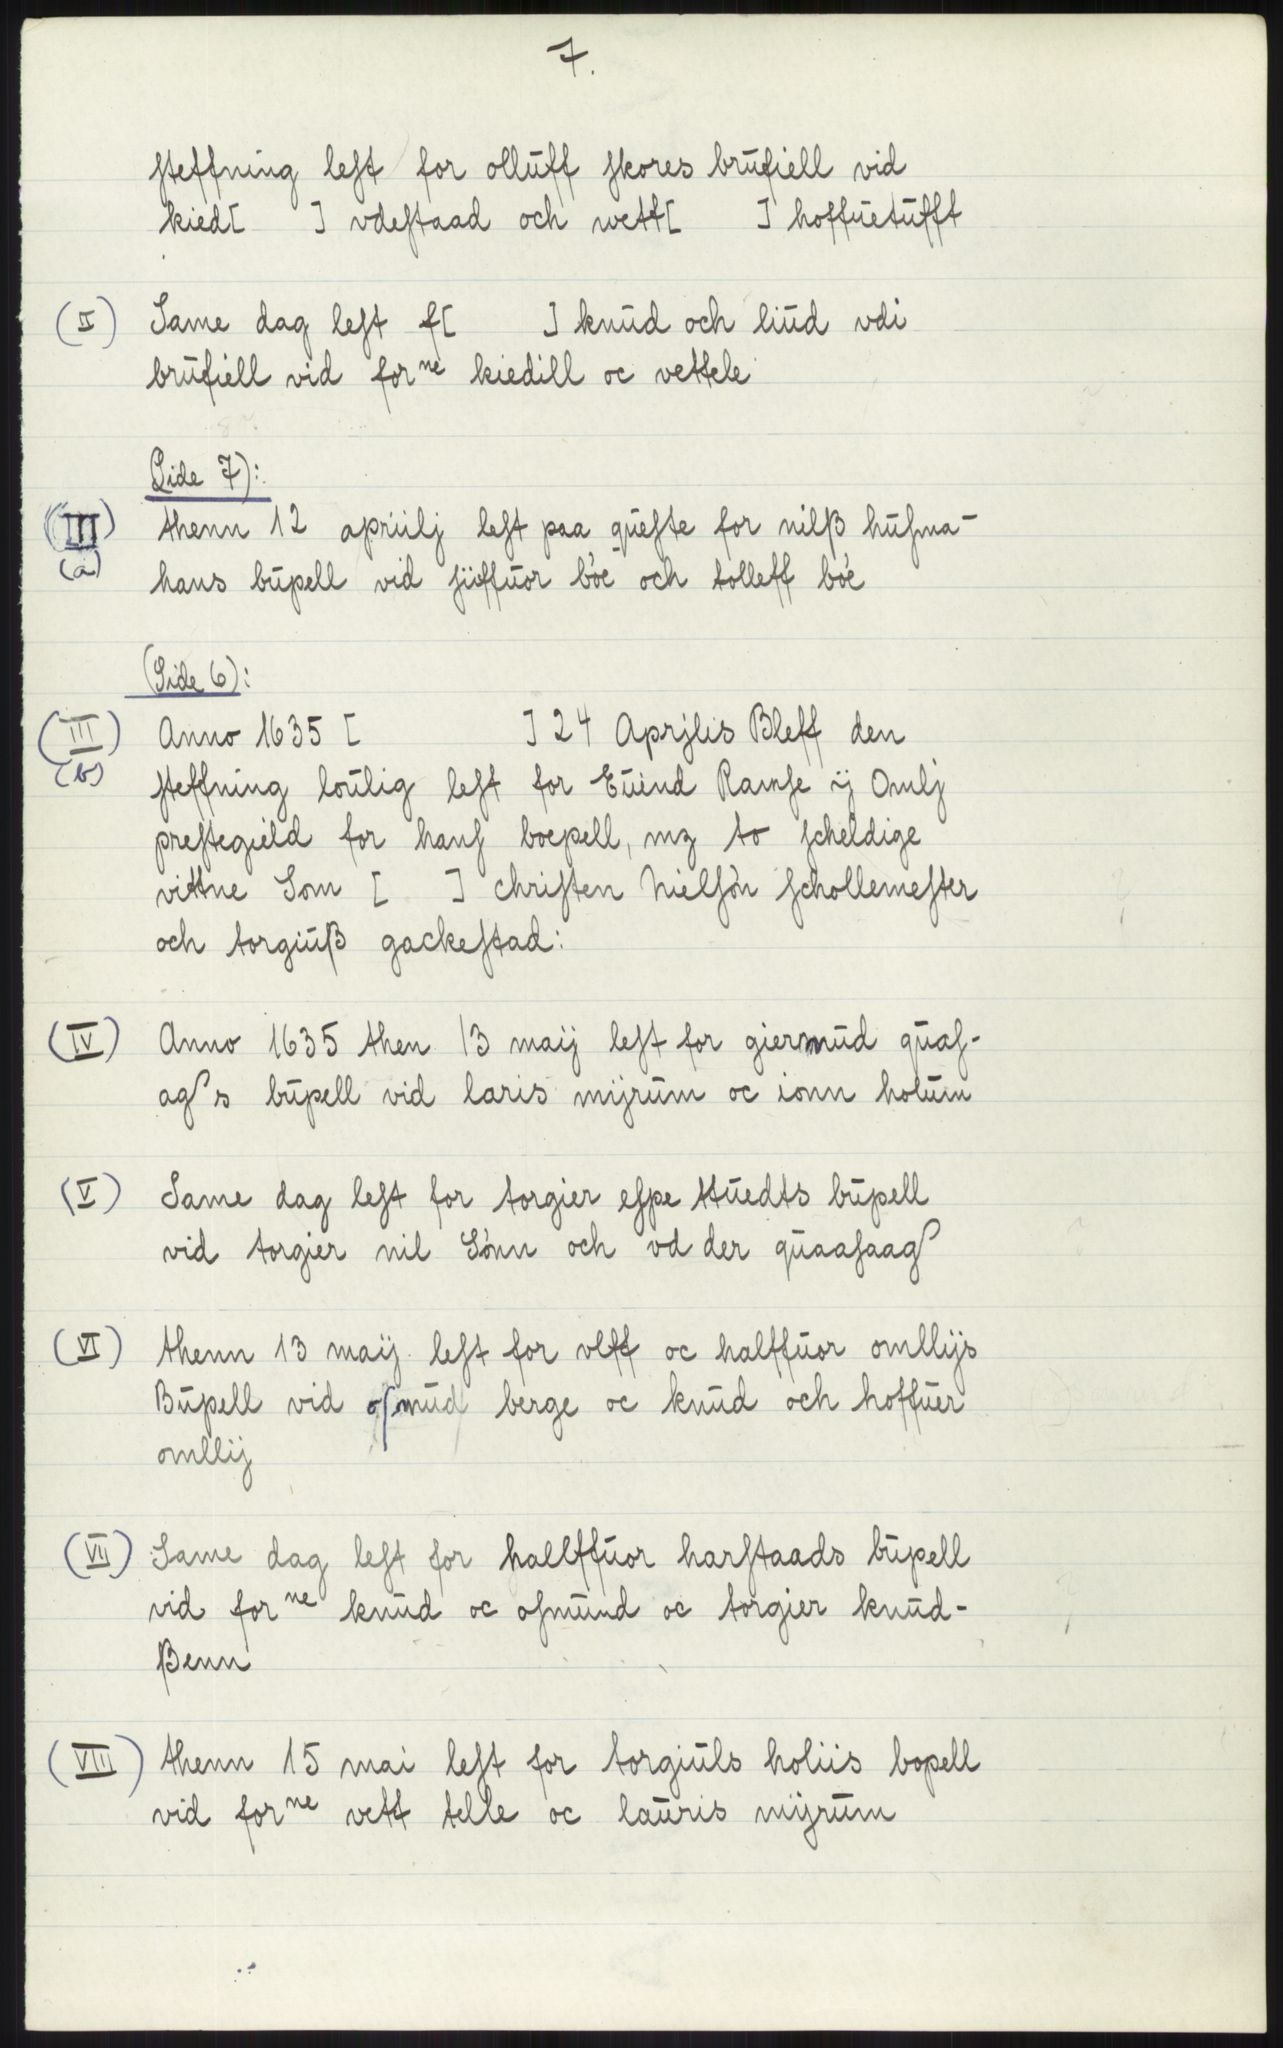 7.
steffning lest for olluff skores brufiell vid
kied[ ] vdestaad och wett[ ] hoffuetufft
(II) Same dag lest f[ ] knud och liud vdi
brufiell vid forne kiedill oc vettele
Side 7):
(III) thenn 12 apriilj lest paa queste for nilß husma-
(a) hans bupell vid siöffuor bóe och tolleff bóe
(Side 6):
(III) Anno 1635 [ ] 24 Aprjlis Bleff den
(b) steffning loulig lest for Euind Ramse ij Omlj
prestegield for hans boepell, mz to scheldige
vittne Som [ ] christen Nielsón schollemester
och torgiuß gackestad:
(IV) Anno 1635 then 13 maij lest for giermud quas-
ags bupell vid laris mijrum oc ionn holum
(V) Same dag lest for torgier espe ttuedts bupell
vid torgier nil Sónn och vd der quaasaag
(VI) thenn 13 maij lest for vlff oc halffuor omllijs
Bupell vid osmud berge oc knud och hoffuer
omllij
(VII) Same dag lest for hallffuor harstaads bupell
vid forne knud oc osmund oc torgier knud-
ßenn
(VIII) thenn 15 mai lest for torgiuls holiis bopell
vid forne vett telle oc lauris mijrum